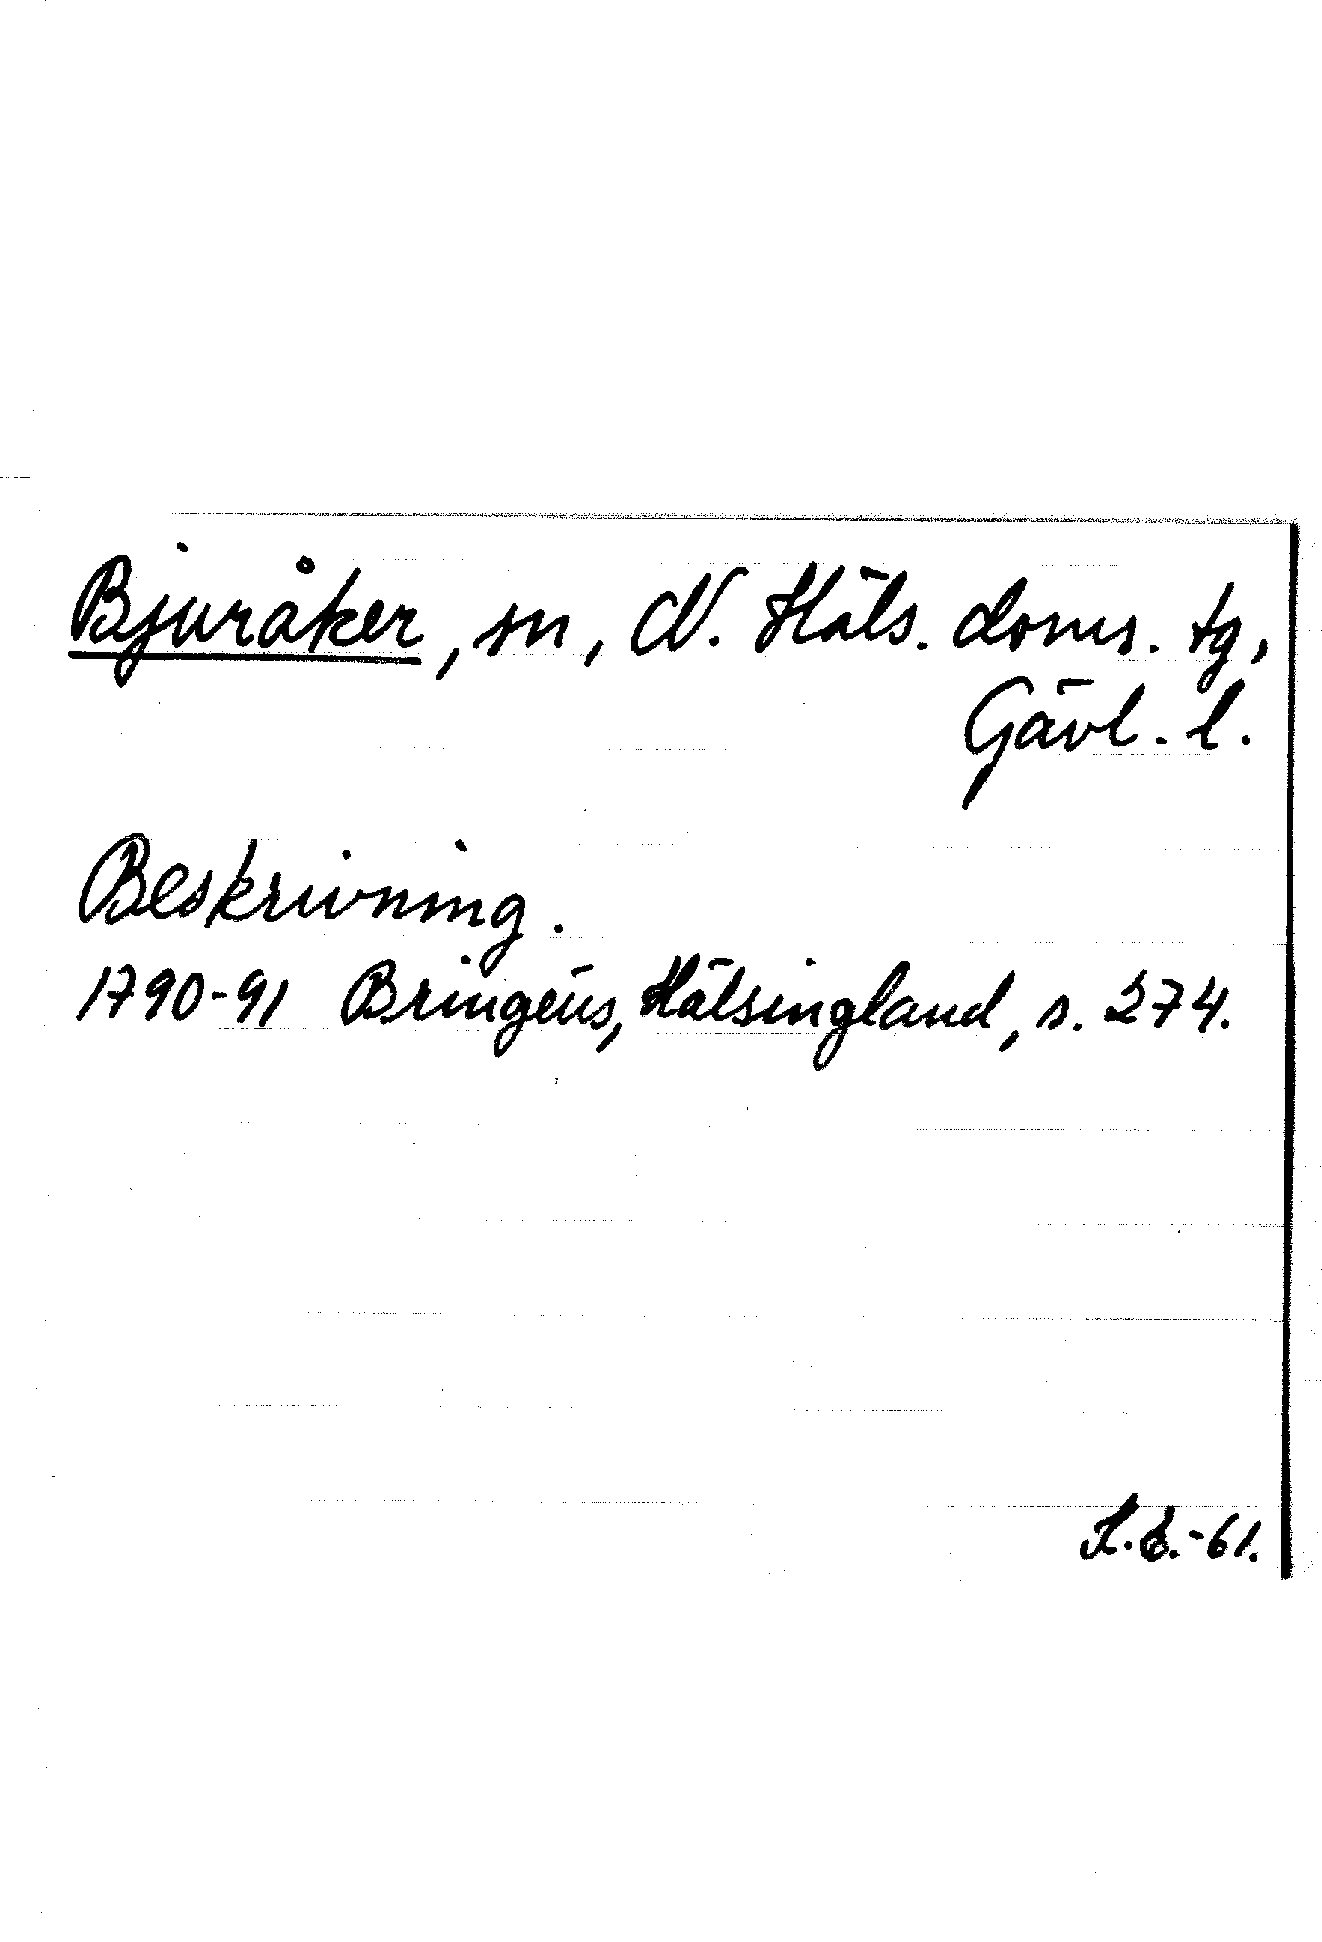 Bjuråker, sn, N. Häls. doms. tg,
Gävl. l.
Beskrivning.
1790-91 Bringéus, Hälsingland, s. 274.
-61.